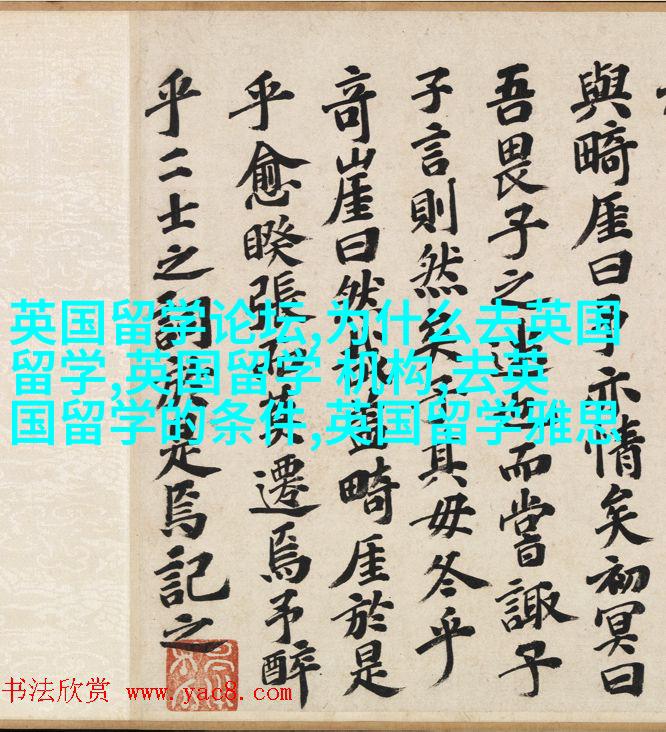 與畸厓曰亦情矣初冥曰
吾畏子之而嘗諏子
子言則然矣子其毋冬乎
奇崖曰然益畸厓於是
乎愈睽張莫遷焉予醉
乎二士之是焉記之
英国留学论坛,为什么去英国
留学,英国留学 机构,去英
国留学的条件,英国留学雅思
书法欣赏 www.yac8.com